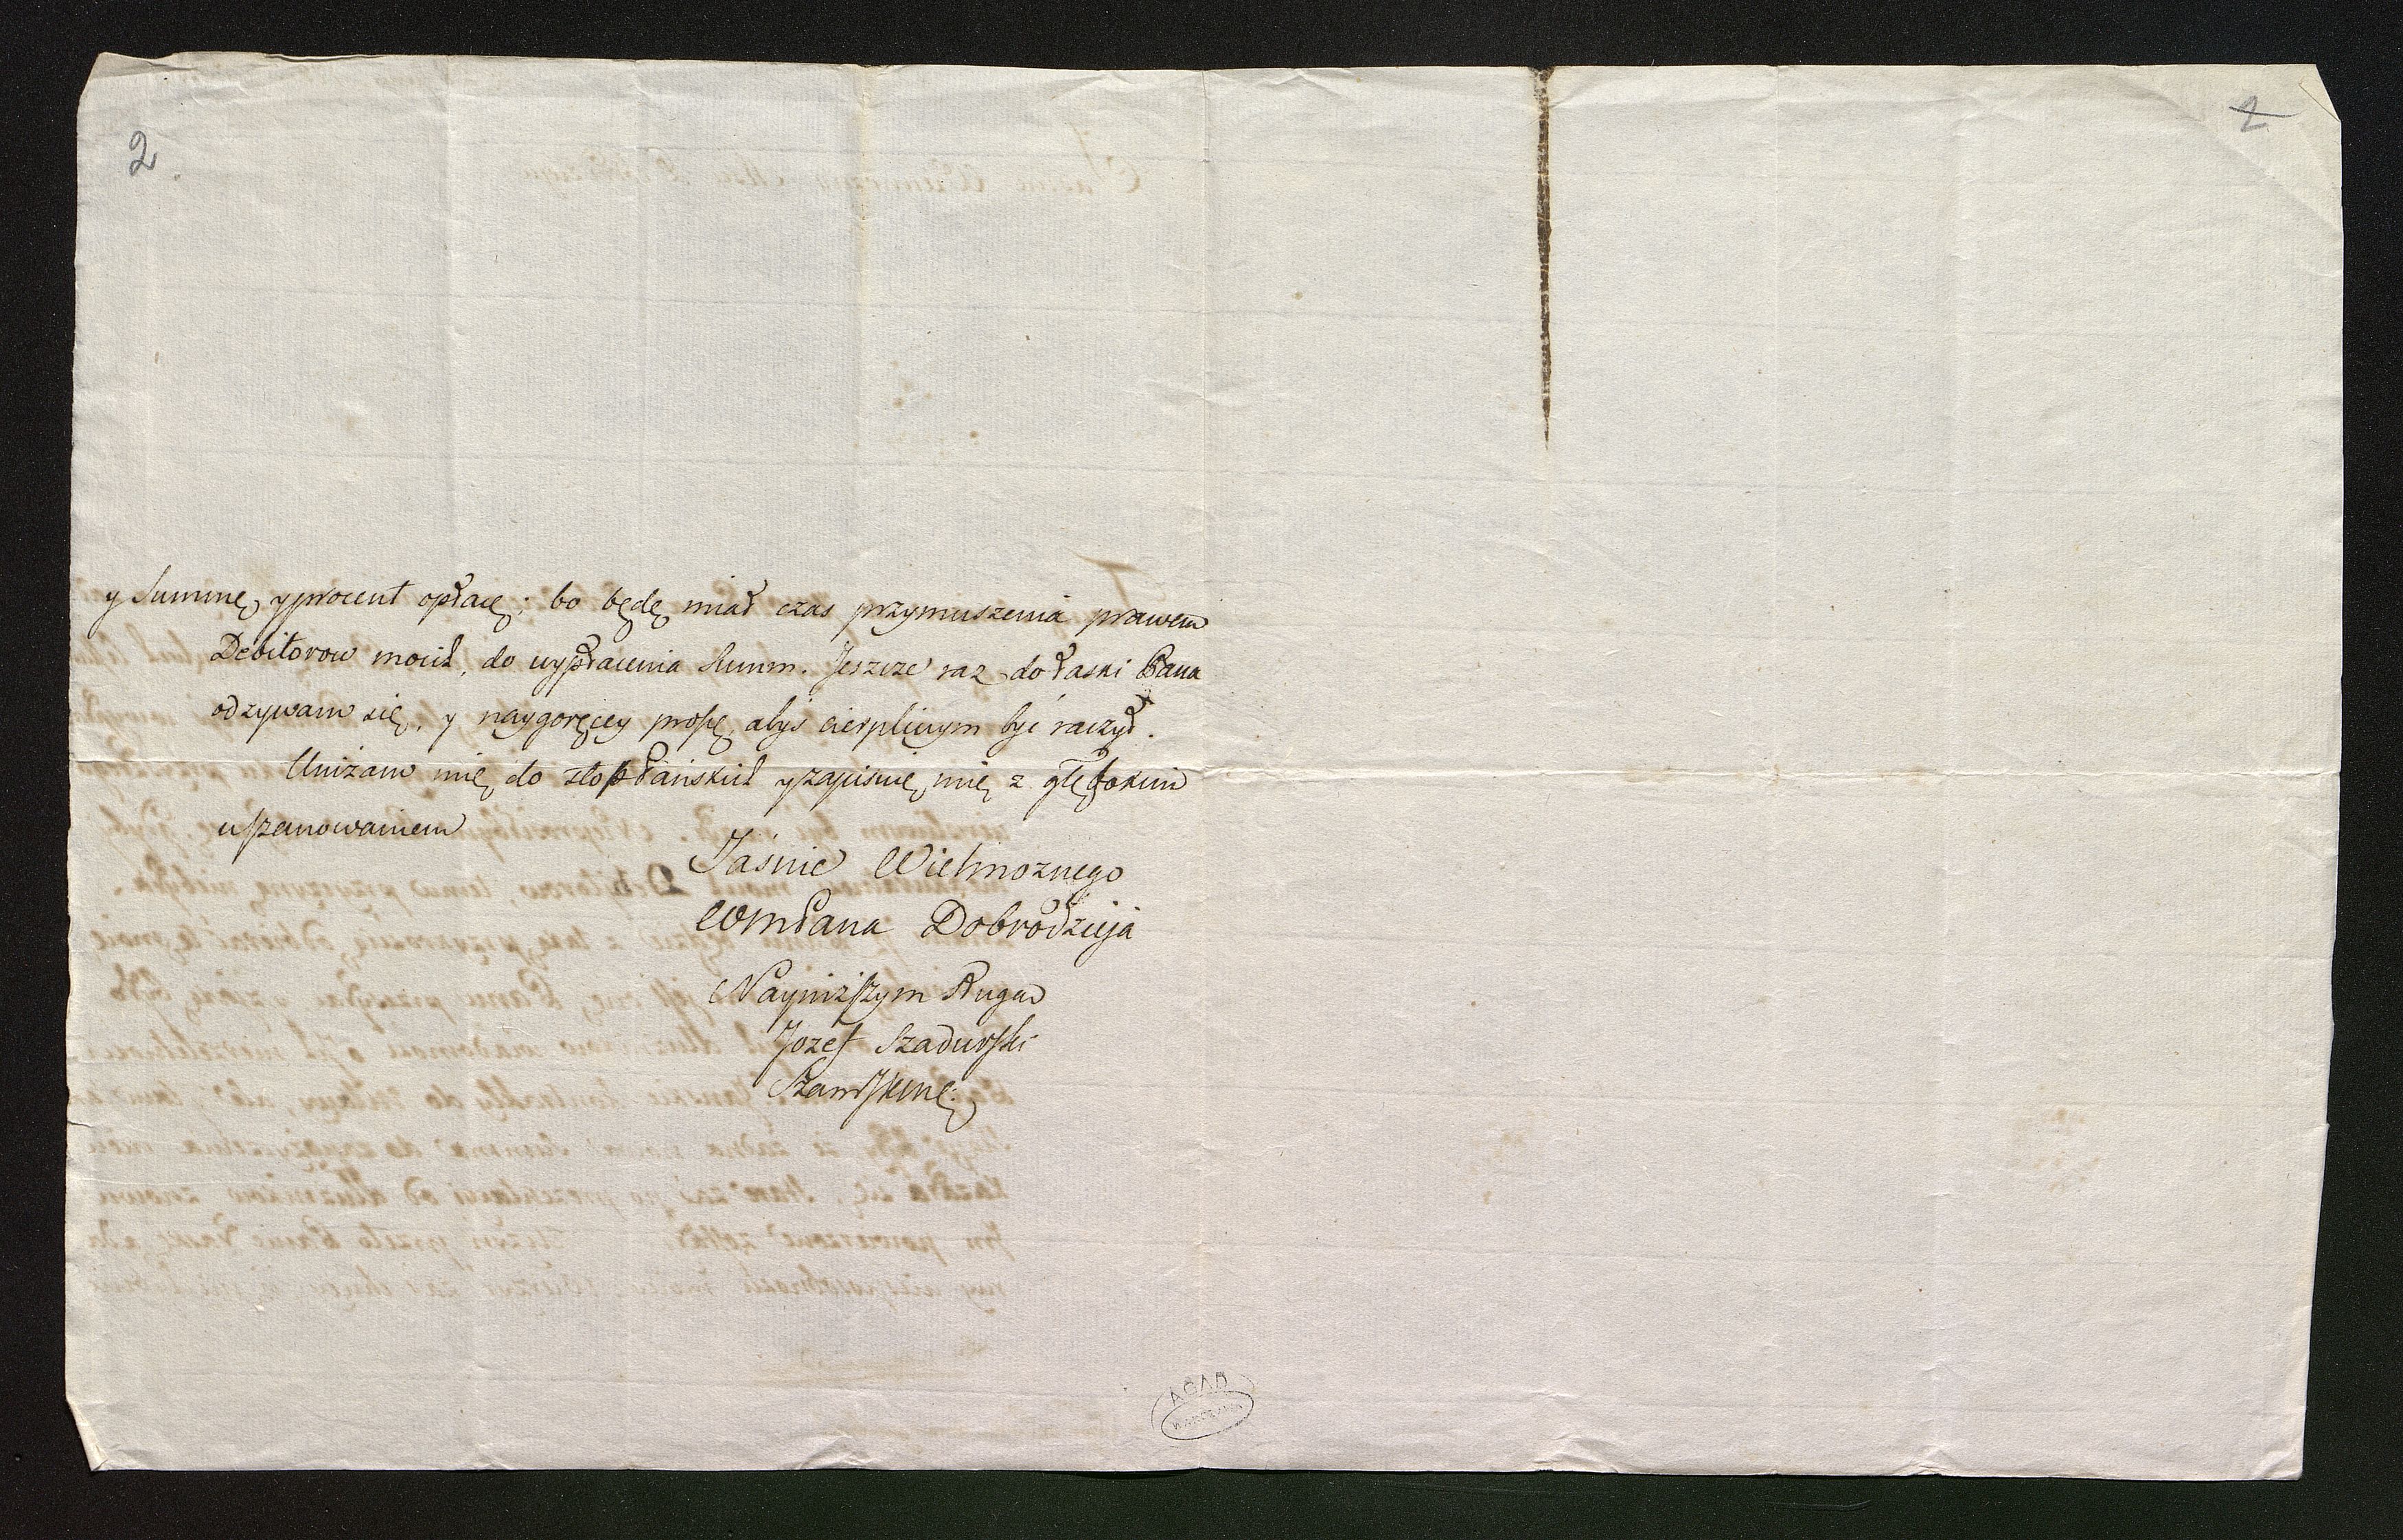 2.
2
y Summę y procent opłacę; bo będę miał czas przymuszenia prawem
Debitorow moich, do wypłacenia Summ. Jeszcze raz do łaski Pana
odzywam się, y naygoręcey proszę, abyś cierpliwym być raczył.
Uniżam mię do stop Pańskich y zapisuię mię z głębokim
uszanowaniem
Jaśnie Wielmoznego
WmPana Dobrodzieja
Nayniższym Sługą
Jozef Szadurski
AGAD
WARSZAWA